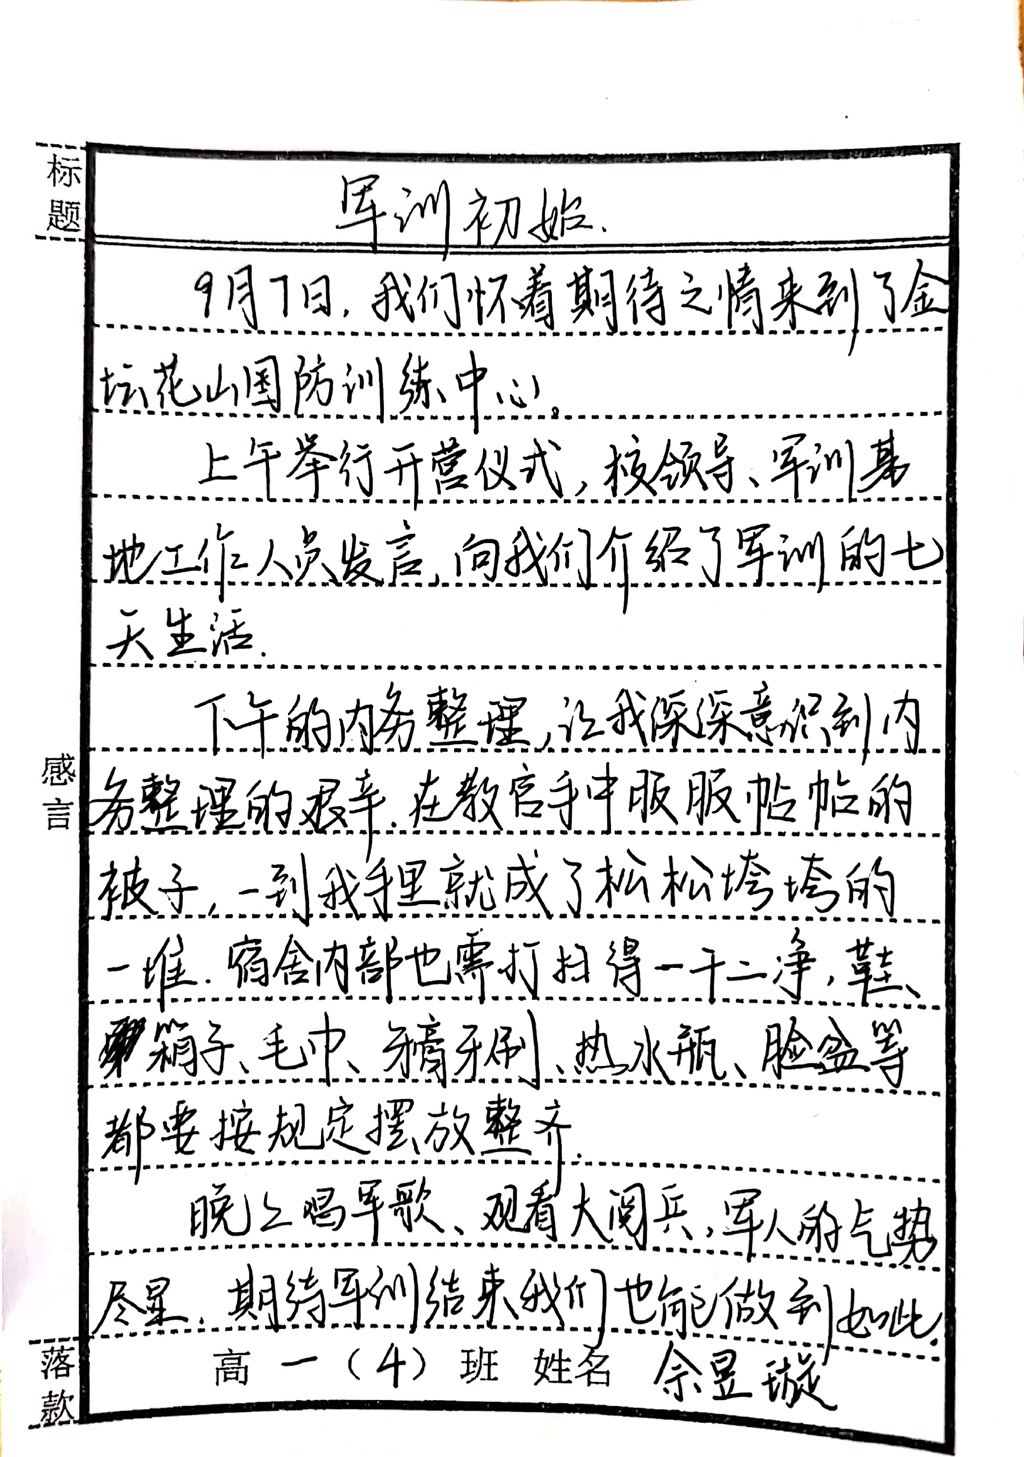 标题
军训初始.
9月7日,我们怀着期待之情来到了金
坛花山国防训练中心。
上午举行开营仪式,校领导、军训基
地工作人员发言,向我们介绍了军训的七
天生活.
下午的内务整理,让我深深意识到内
务整理的艰辛.在教官手中服服帖帖的
被子,一到我手里就成了松松垮垮的
一堆.宿舍内部也需打扫得一干二净,鞋、
箱子、毛巾、牙膏牙刷、热水瓶、脸盆等
都要按规定摆放整齐.
晚上唱军歌、观看大阅兵,军人的气势
尽显.期待军训结束我们也能做到如此.
感言
落款
高一(4)班 姓名 余昱璇